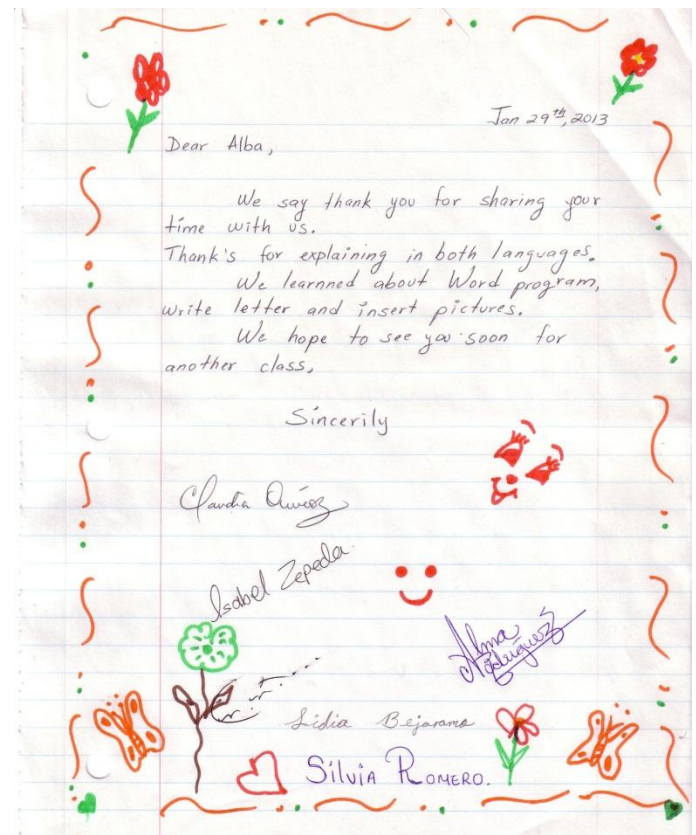 Jan 29th, 2013
Dear Alba,
We say thank you for sharing your
time with us.
Thank's for explaining in both languages.
We learnned about Word program,
write letter and insert pictures.
We hope to see you soon for
another class.
Sincerily
Claudia
Isabel Zepeda.
Alma
Rodriguez
Lidia Bejarano
Silvia Romero.